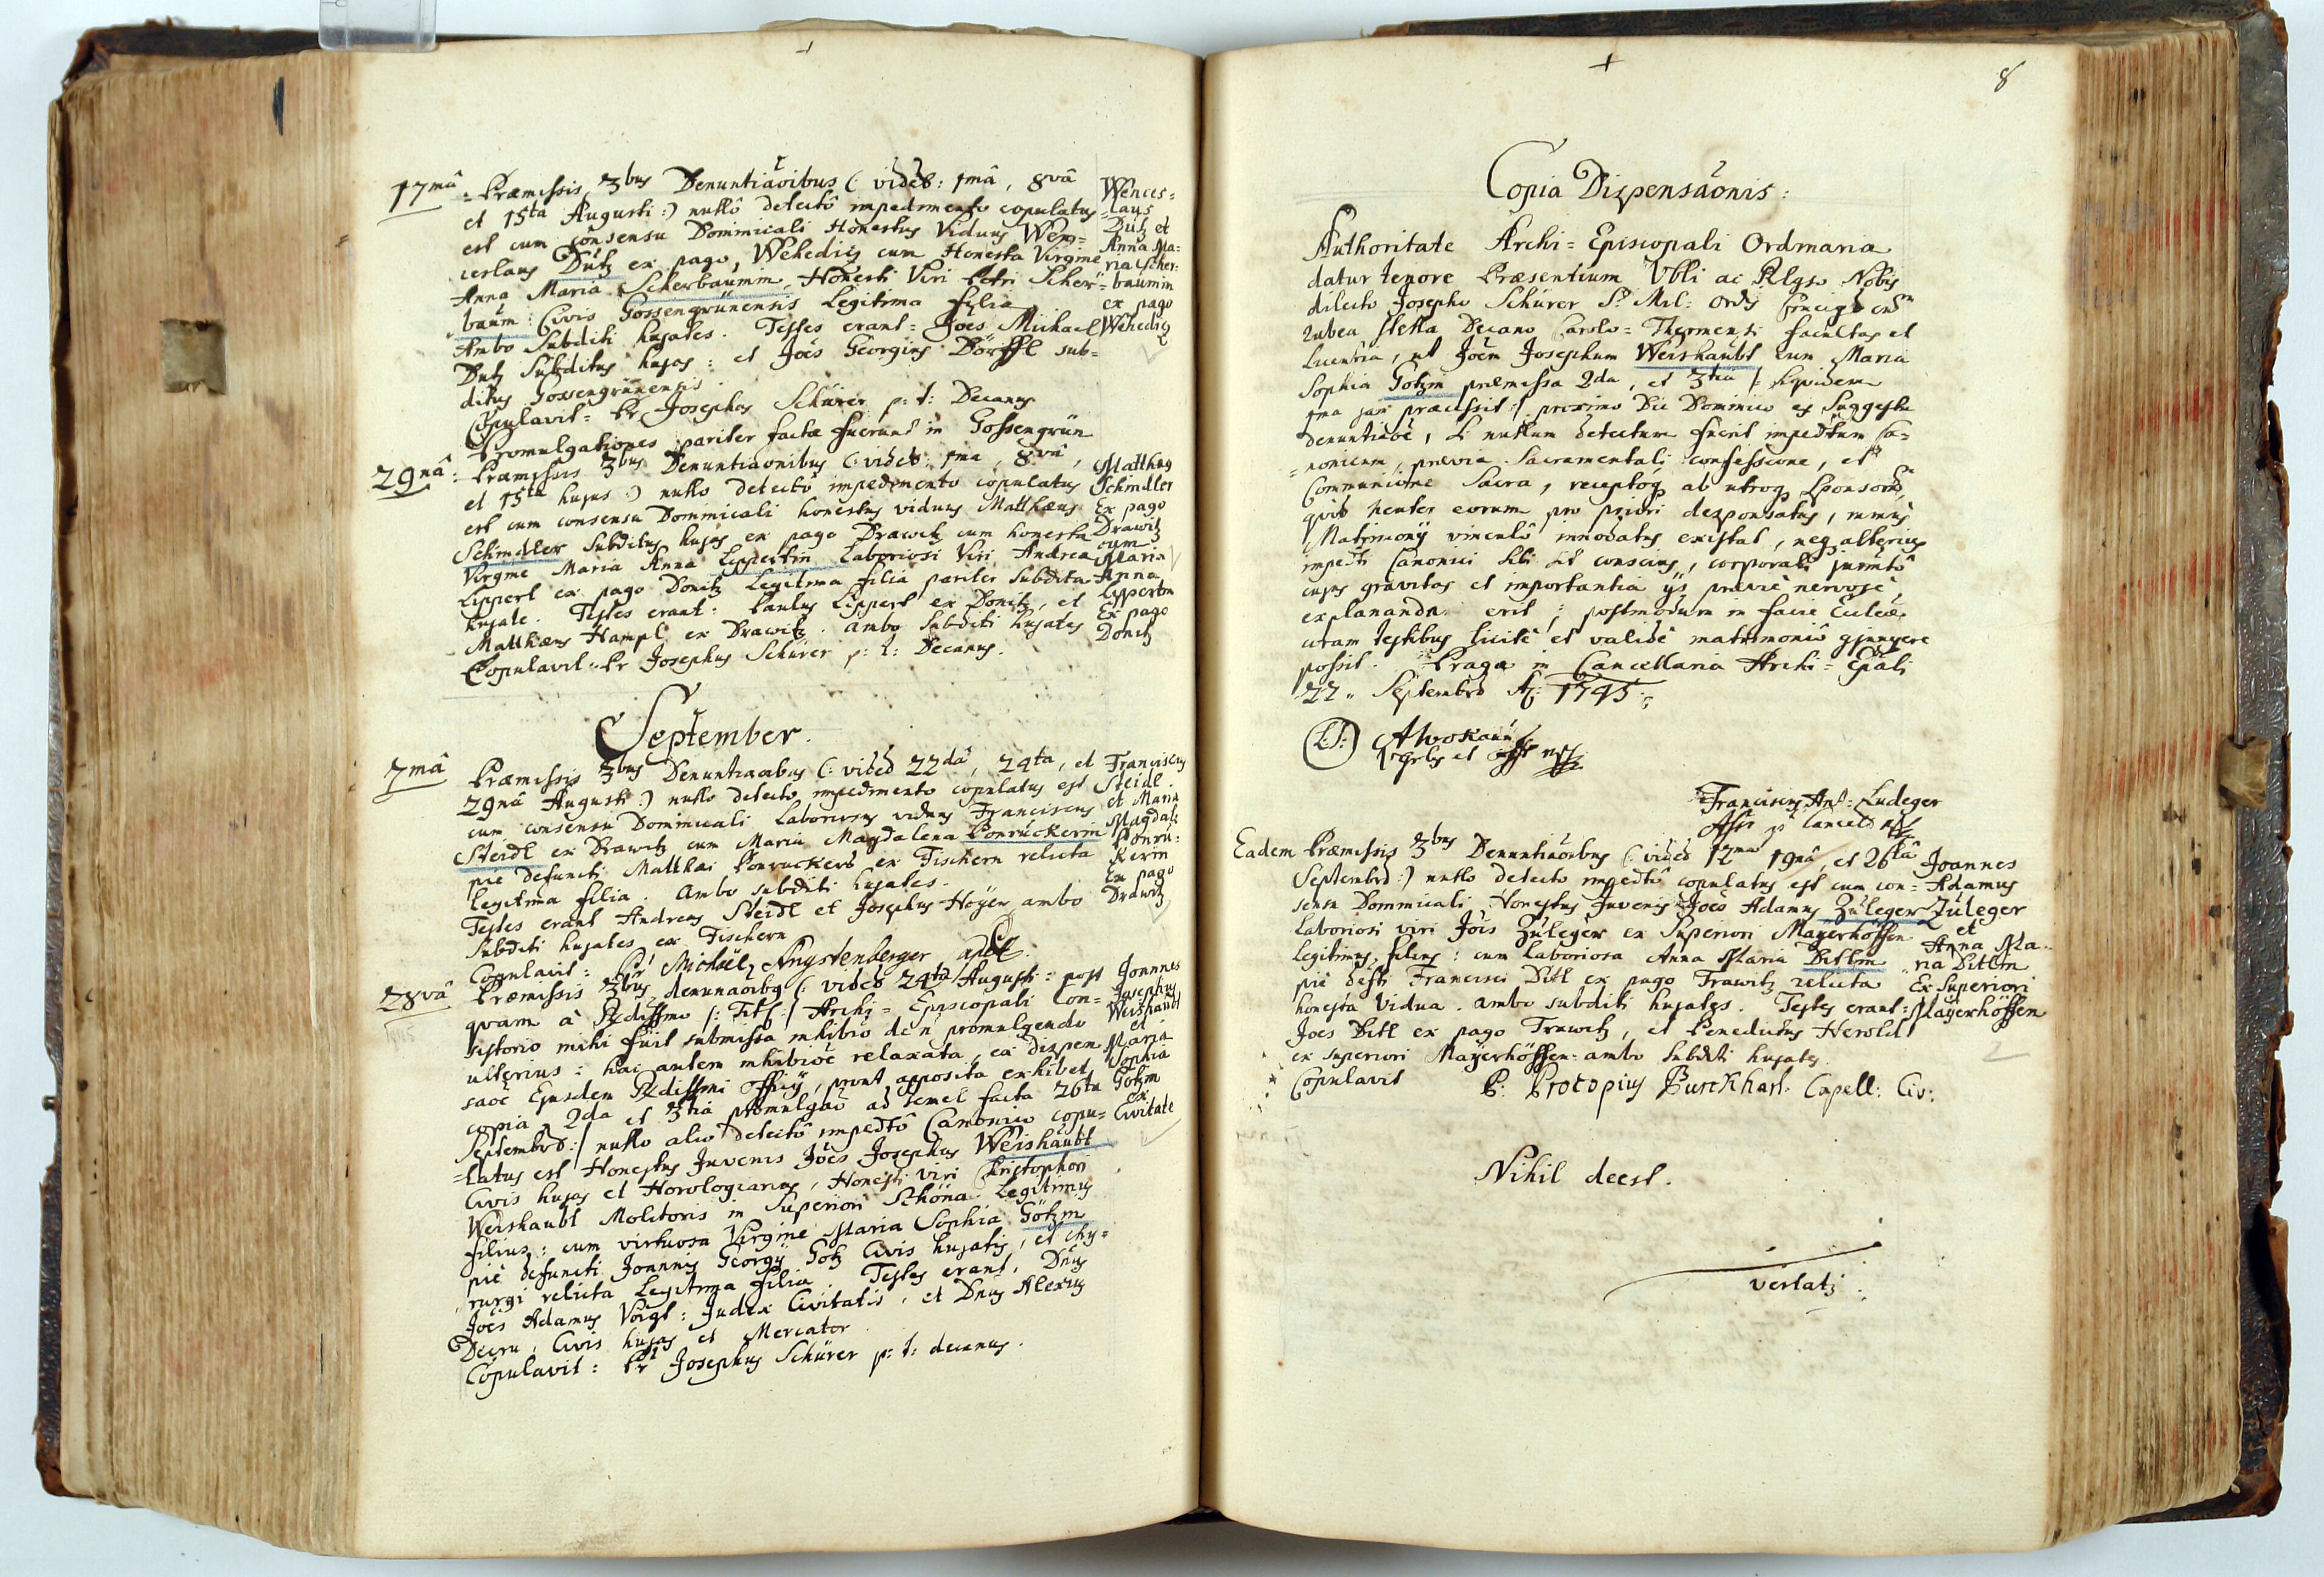 17mâ
Præmissis 3bus Denuntiaõibus (: videt: 1mâ, 8vâ
et 15ta Augusti :) nullô detectô impedimento copulatus
est cum consensu Dominicali Honestus Viduus Wen=
ceslaus Dütz ex pago, Wehediz cum Honesta Virgine
Anna Maria Scherbaumin, Honesti Viri Petri Scher=
baum: Civis Gossengrünensis Legitima filia
Ambo Subditi hujates. Testes erant: Joes Michael
Dutz Subditus hujas: et Joes Georgius Dörffl sub=
ditus Gossengrünensis.
Copulavit: Pr Josephus Schürer p: t: Decanus
Promulgationes pariter factæ fuerunt in Gossengrün
Wences=
=laus
Dütz et
Anna Ma=
ria Scher=
baumin
ex pago
Wehediz
29nâ:
Præmissis 3bus Denuntiaonibus (: videt: 1ma, 8va,
et 15ta hujus :) nullo detectô impedimento copulatus
est cum consensu Dominicali honestus viduus Matthæus
Schindler Subditus hujas ex pago Drawitz cum honesta
Virgine Maria Anna Lippertin Laboriosi Viri Andrea
Lippert ex pago Donitz Legitima filia pariter Subdita
hujate. Testes erant: Paulus Lippert ex Donitz, et
Matthæus Hampl ex Drawitz. ambo Subditi hujates
Copulavit: Pr Josephus Schürer p: t: Decanus.
Matthæus
Schindler
Ex pago
Drawitz
cum
Maria
Anna
Lippertin
Ex pago
Donitz
September.
7mâ
Præmissis 3bus Denuntiaoibus (: videt 22dâ, 24ta, et
29nâ Augusti :) nullo detecto impedimento copulatus est
cum consensu Dominicali Laboriosus viduus Franciscus
Steidl ex Drawitz cum Maria Magdalena Ponrückerin
pie defuncti Matthæi Ponruckers ex Fischern relicta
Legitima filia. Ambo subditi hujates.
Testes erant Andreas Steidl et Josephus Höyer ambo
Subditi hujates ex Fischern
Copulavit: Pr Michaël Angstenberger
Franciscus
Steidl
et Maria
Magdale
Ponrü=
kerin
Ex pago
Drawitz
28vâ
Præmissis 3bus denunaoibg (: videt 24ta Augusti: post
quam à Rdissimo |: Titl :| Archi=Episcopali Con=
sistorio mihi fuit submissa inhibio de ñ promulgendo
ulterius: hac autem inhibiõe relaxata, ex dispen
saõe Ejusdem Rdissimi Officij, prout apposita exhibet
copia 2da et 3tia promulgaõ ad semel facta 26ta
Septembrs :| nullo alio detectô impedtô Canonico copu=
=latus est Honestus Juvenis Joes Josephus Weishäubt
Civis hujas et Horologiarius, Honesti viri Christophori
Weishaubt Molitoris in Superiori Schöna Legitimus
filius: cum virtuosa Virgine Maria Sophia Götzin
piè defuncti Joannis Georgÿ Götz Civis hujatis, et chy=
rurgi relicta Legitima filia. Testes erant, Dnus
Joes Adamus Voigt: Judex Civitatis, et Dnus Alexius
Civis hujas et Mercator
Copulavit: Pr Josephus Schürer p: t: decanus.
Joannes
Josephus
Weishaubt
et
Maria
Sophia
Götzin
ex
Civitate
8
Copia Dispensaõnis:
Authoritate Archi=Episcopali Ordinaria
datur tenore Præsentium Vbli ac Rlgso Nobis
dilecto Josepho Schürer S: Mil: Ordis
rubea stella Decano Carolo=Thermensi facultas et
licentia, ut Joem Josephum Weishaubt cum Maria
Sophia Götzin præmissa 2da, et 3tia |: siquidem
1ma jam præcessit :| proximo Die Dominico ex Suggestu
denuntiaõe, si nullum detectum fuerit impedtum Ca=
=nonicum, prævia Sacramentali confessione, et
Communione Sacra, receptoq ab utroq Sponsorũ,
quòd neuter eorum pro priori desponsatus, minus
Matrimonÿ vinculô innodatus existat, neq alterius
impedti Canonici sibi sit conscius, corporali juramtô
cujus gravitas et importantia ijs prævie nervosè
explananda erit; postmodum in facie Ecclæ
coram testibus licitè et validè matrimoniô gjungere
possit. Pragæ in Cancellaria Archi=Epali
22" Septembrs Aô: 1745.
(L:S:)
Franciscus Ant: Ludeger
Eadem
Præmissis 3bus Denuntiaõibus (: videt 12ma 19nâ, et 26tâ
Septembrs :) nullo detecto impedtô copulatus est cum con=
sensu Dominicali Honestus Juvenis Joes Adamus Züleger
Laboriosi viri Jois Züleger ex Superiori Mayerhöffen
Legitimus filius: cum Laboriosa Anna Maria Ditlin
piè defti Francisci Ditl ex pago Trawitz relicta
honesta Vidua. ambo subditi hujates. Testes erant:
Joes Ditl ex pago Trawitz, et Benedictus Herold
ex superiori Mayerhöffen: ambo subditi hujates
Copulavit P: Procopius Burckhart. Capell: Civ:
Joannes
Adamus
Züleger
et
Anna Ma=
ria Ditlin
Ex Superiori
Mayerhöffen
Nihil deest.